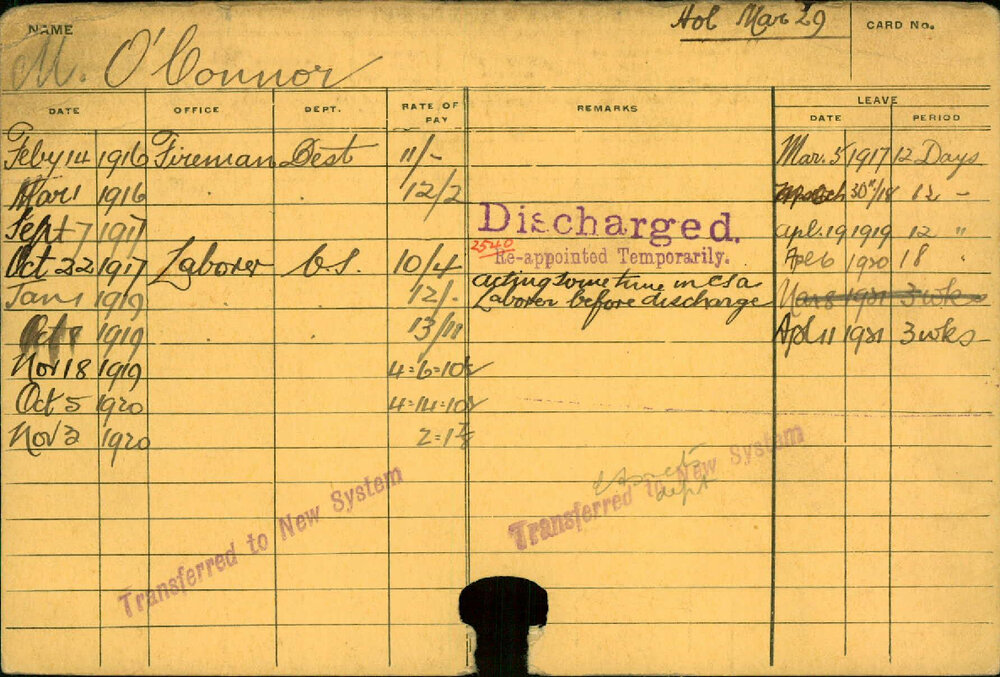 Hol Mar 29
NAME
CARD No.
M. O'Connor
DATE OFFICE DEPT. RATE OF PAY REMARKS LEAVE
DATE PERIOD
Feby 14 1916 Fireman Dest 11/- Mar. 5 1917 12 Days
Mar 1 1916 12/2 March 30th/18 12 -
Sept 7 1917 Discharged. Apl. 19 1919 12 "
2540
Re-appointed Temporarily.
Oct 22 1917 Laborer C.S. 10/4 Apl 6 1920 18 "
acting some time in CSa
Jan 1 1919 12/- Laborer before discharge Mar 8 1921 3 wks
Oct 8 1919 13/11 Apl 11 1921 3 wks
Nov 18 1919 4=6=10½
Oct 5 1920 4=14=10½
Nov 3 1920 2=1½
Transferred to New System
Transferred to New System
dept